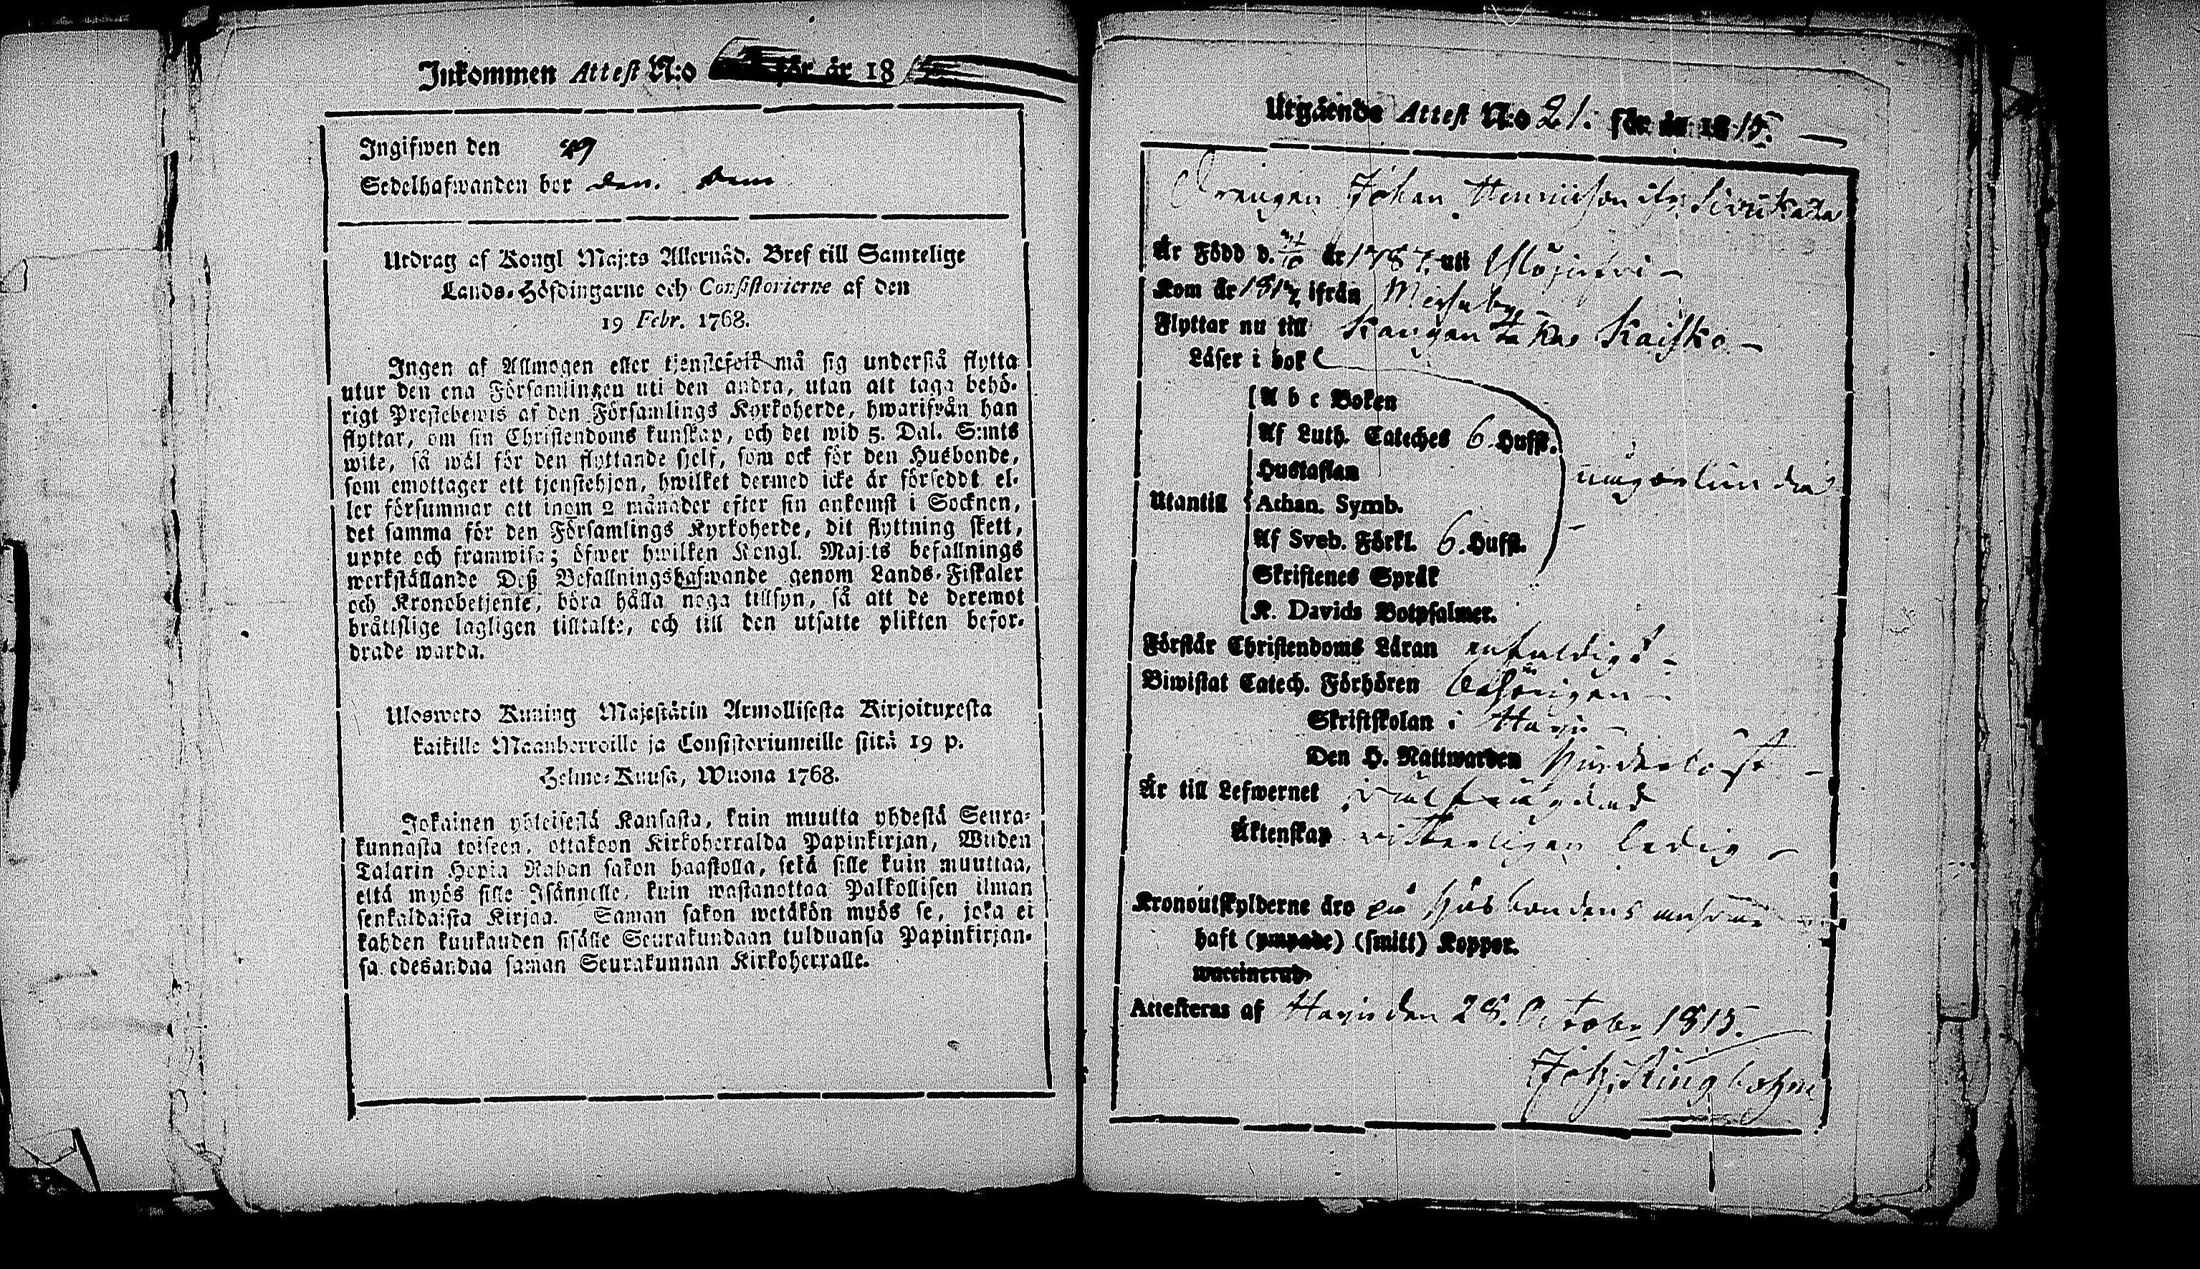 Inkommen Attest N:o för år 18
Ingifwen den
Sedelhafwanden bor den.
Utdrag af Kongl Maj:ts Allernåd. Bref till Samtelige
Lands-Höfdingarne och Consistorierne af den
19 Febr. 1768.
Ingen af Allmogen eller tjenstefolk må sig understå flytta
utur den ena Församlingen uti den andra, utan att taga behö-
rigt Prestebewis af den Församlings Kyrkoherde, hwarifrån han
flyttar, om sin Christendoms kunskap, och det wid 5. Dal. S:mts
wite, så wäl för den flyttande sjelf, som ock för den Husbonde,
som emottager ett tjenstehjon, hwilket dermed icke är förseddt el-
ler försummar att inom 2 månader efter sin ankomst i Socknen,
det samma för den Församlings Kyrkoherde, dit flyttning skett,
uppte och framwisa; öfwer hwilken Kongl. Maj:ts befallnings
werkställande Deß Befallningshafwande genom Lands-Fiskaler
och Kronobetjente, böra hålla noga tillsyn, så att de deremot
bråttslige lagligen tilltalte, och till den utsatte plikten befor-
drade warda.
Ulosweto Kuning Majestätin Armollisesta Kirjoituxesta
kaikille Maanherroille ja Consistoriumeille siitä 19 p.
Helme-Kuusa, Wuona 1768.
Jokainen yhteisestä Kansasta, kuin muutta yhdestä Seura-
kunnasta toiseen, ottakoon Kirkoherralda Papinkirjan, Wiiden
Talarin Hopia Rahan sakon haastolla, sekä sille kuin muuttaa,
että myös sille Isännelle, kuin wastanottaa Palkollisen ilman
senkaldaista Kirjaa. Saman sakon wetäkön myös se, joka ei
kahden kuukauden sisälle Seurakundaan tulduansa Papinkirjan-
sa edesandaa saman Seurakunnan Kirkoherralle.
Utgående Attest N:o 21. för år 1815.
Drengen Johan Henricsson ifr.
Är Född d. år 1787. uti
Kom år 1812 ifrån
Flyttar nu till Kaisko
Läser i bok
A b c Boken
Af Luth. Cateches 6. Hufst.
Hustaflan
någorlunda
Utantill Athan. Symb.
Af Sveb. Förkl. 6. Hufst.
Skriftenes Språk
K. Davids Botpsalmer.
Förstår Christendoms Läran enfaldigt
Biwistat Catech. Förhören behörigen
Skriftskolan i
Den H. Nattwarden
Är till Lefwernet
Äktenskap witterligen ledig
Kronoutskylderne äro på Husbondens answar
haft (ympade) (smitt) Koppor.
waccinerad.
Attesteras af den 28. October 1815.
Joh. Ringbohm